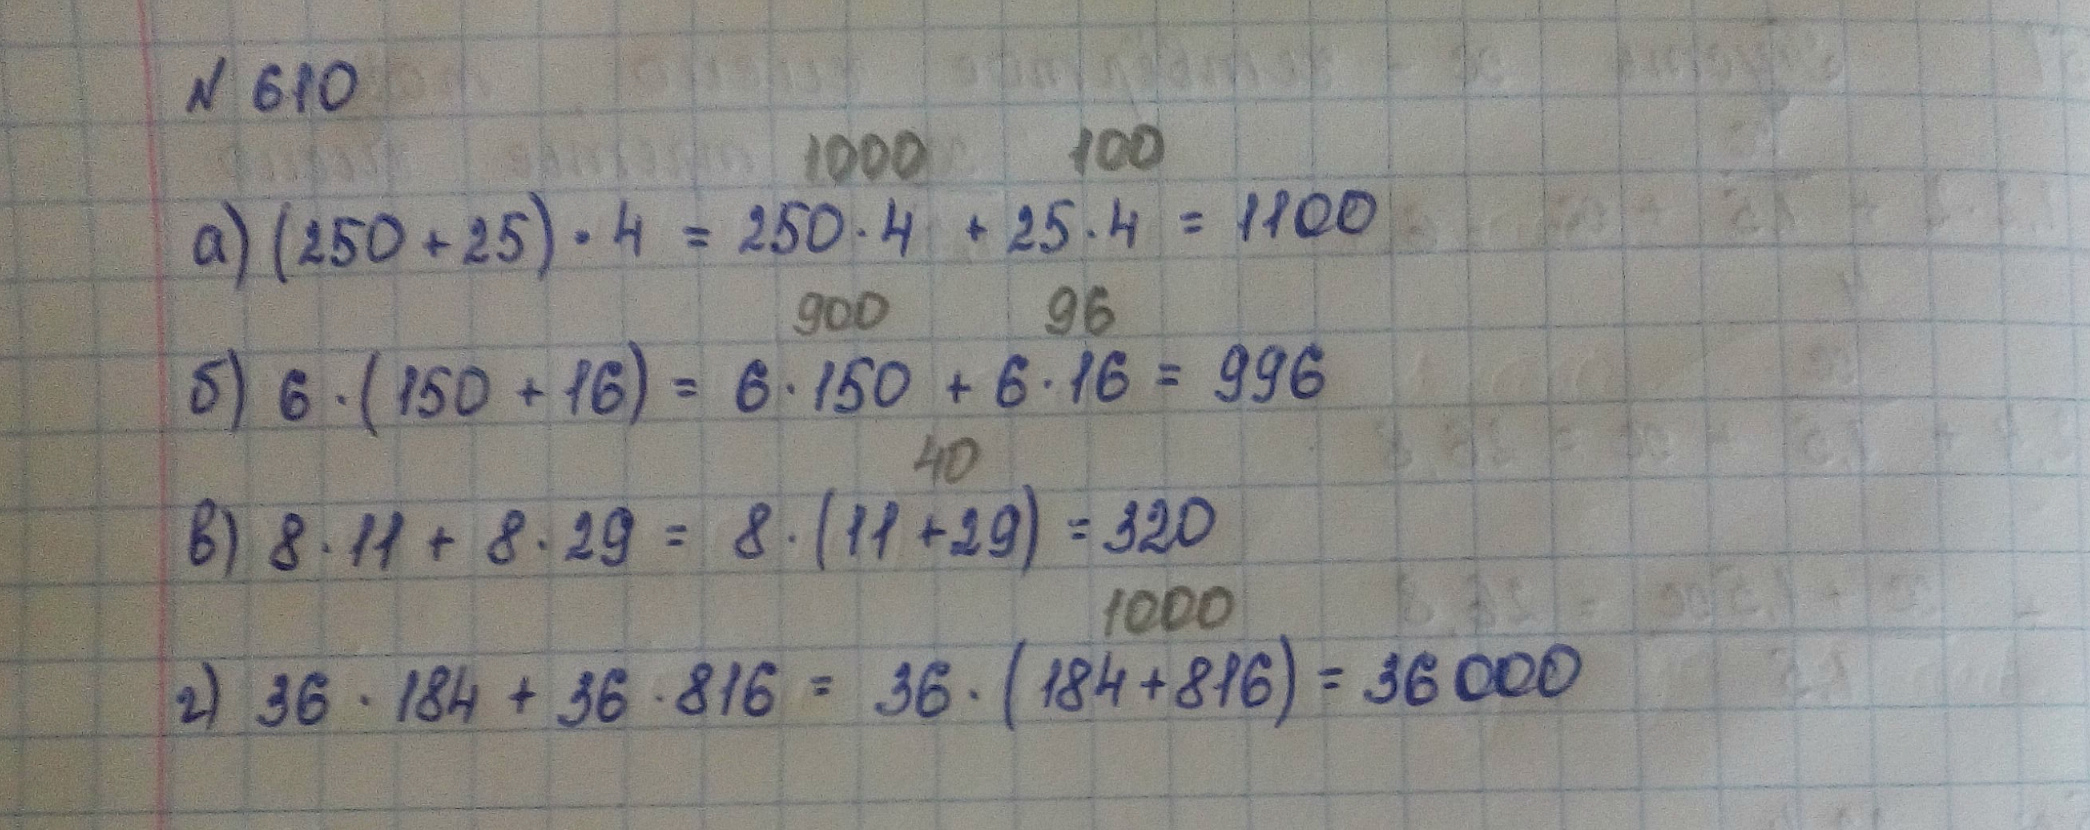 № 610
1000 100
а) (250 + 25) · 4 = 250 · 4 + 25 · 4 = 1100
900 96
б) 6 · (150 + 16) = 6 · 150 + 6 · 16 = 996
40
в) 8 · 11 + 8 · 29 = 8 · (11 + 29) = 320
1000
г) 36 · 184 + 36 · 816 = 36 · (184 + 816) = 36 000